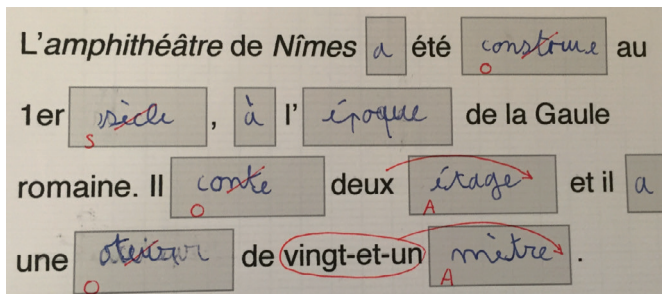 L'amphithéâtre de Nîmes a été construe au
O
1er sècle , à l' époque de la Gaule
S
romaine. Il conte deux étage et il a
O A
une de vingt-et-un mètre .
O A